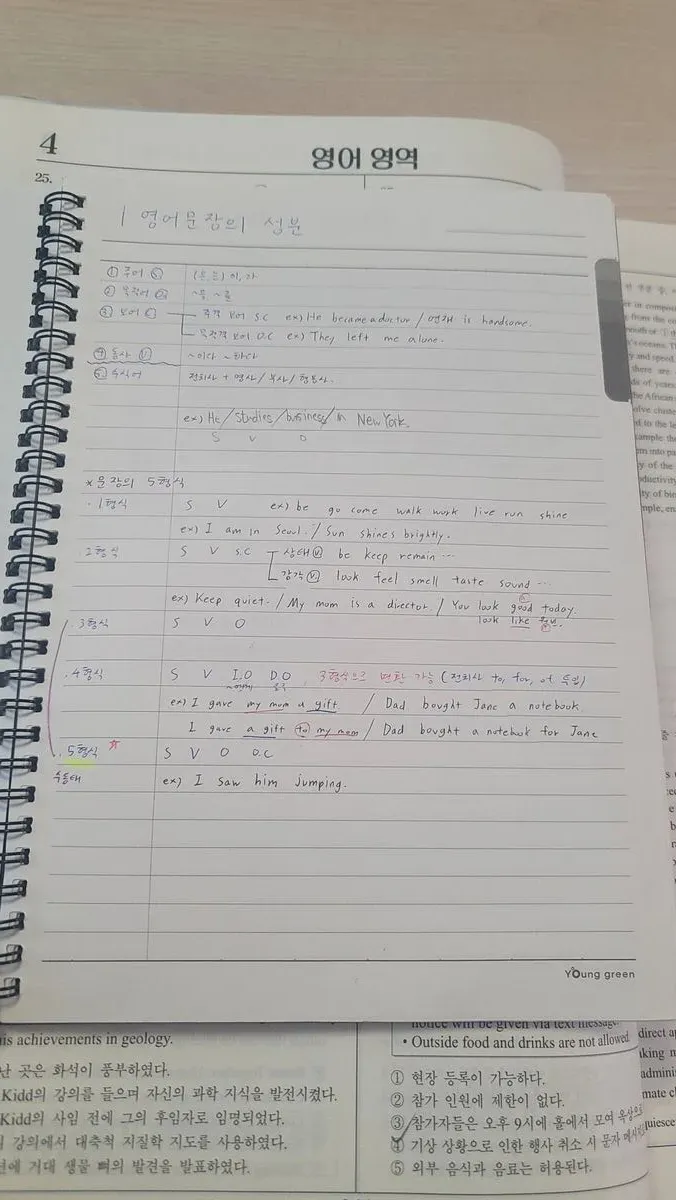 4
영어 영역
25.
1 영어문장의 성분
① 주어 Ⓢ (은, 는) 이, 가
② 목적어 ~을, ~를
③ 보어 Ⓒ 주격 보어 S.C ex) He became a doctor / is handsome.
목적격 보어 O.C ex) They left me alone.
④ 동사 Ⓥ ~이다 ~하다
⑤ 수식어 전치사 + 명사 / 부사 / 형용사.
ex) He / studies / business / in New York.
S V O
* 문장의 5형식
· 1형식 S V ex) be go come walk work live run shine
ex) I am in Seoul. / Sun shines brightly.
2형식 S V S.C 상태 Ⓥ be keep remain ...
감각 Ⓥ look feel smell taste sound ...
ex) Keep quiet. / My mom is a director / You look good today.
look like
· 3형식 S V O
· 4형식 S V I.O D.O 3형식으로 변환 가능 (전치사 to, for, of
~에게
ex) I gave my mom a gift / Dad bought Jane a notebook
I gave a gift to my mom / Dad bought a notebook for Jane
· 5형식 S V O O.C
수동태 ex) I saw him jumping.
Young green
is achievements in geology.
난 곳은 화석이 풍부하였다.
Kidd의 강의를 들으며 자신의 과학 지식을 발전시켰다.
Kidd의 사임 전에 그의 후임자로 임명되었다.
강의에서 대축척 지질학 지도를 사용하였다.
전에 거대 생물 뼈의 발견을 발표하였다.
notice will be given via text message.
• Outside food and drinks are not allowed
① 현장 등록이 가능하다.
② 참가 인원에 제한이 없다.
③ 참가자들은 오후 9시에 홀에서 모여 옥상으
④ 기상 상황으로 인한 행사 취소 시 문자 메시지
⑤ 외부 음식과 음료는 허용된다.